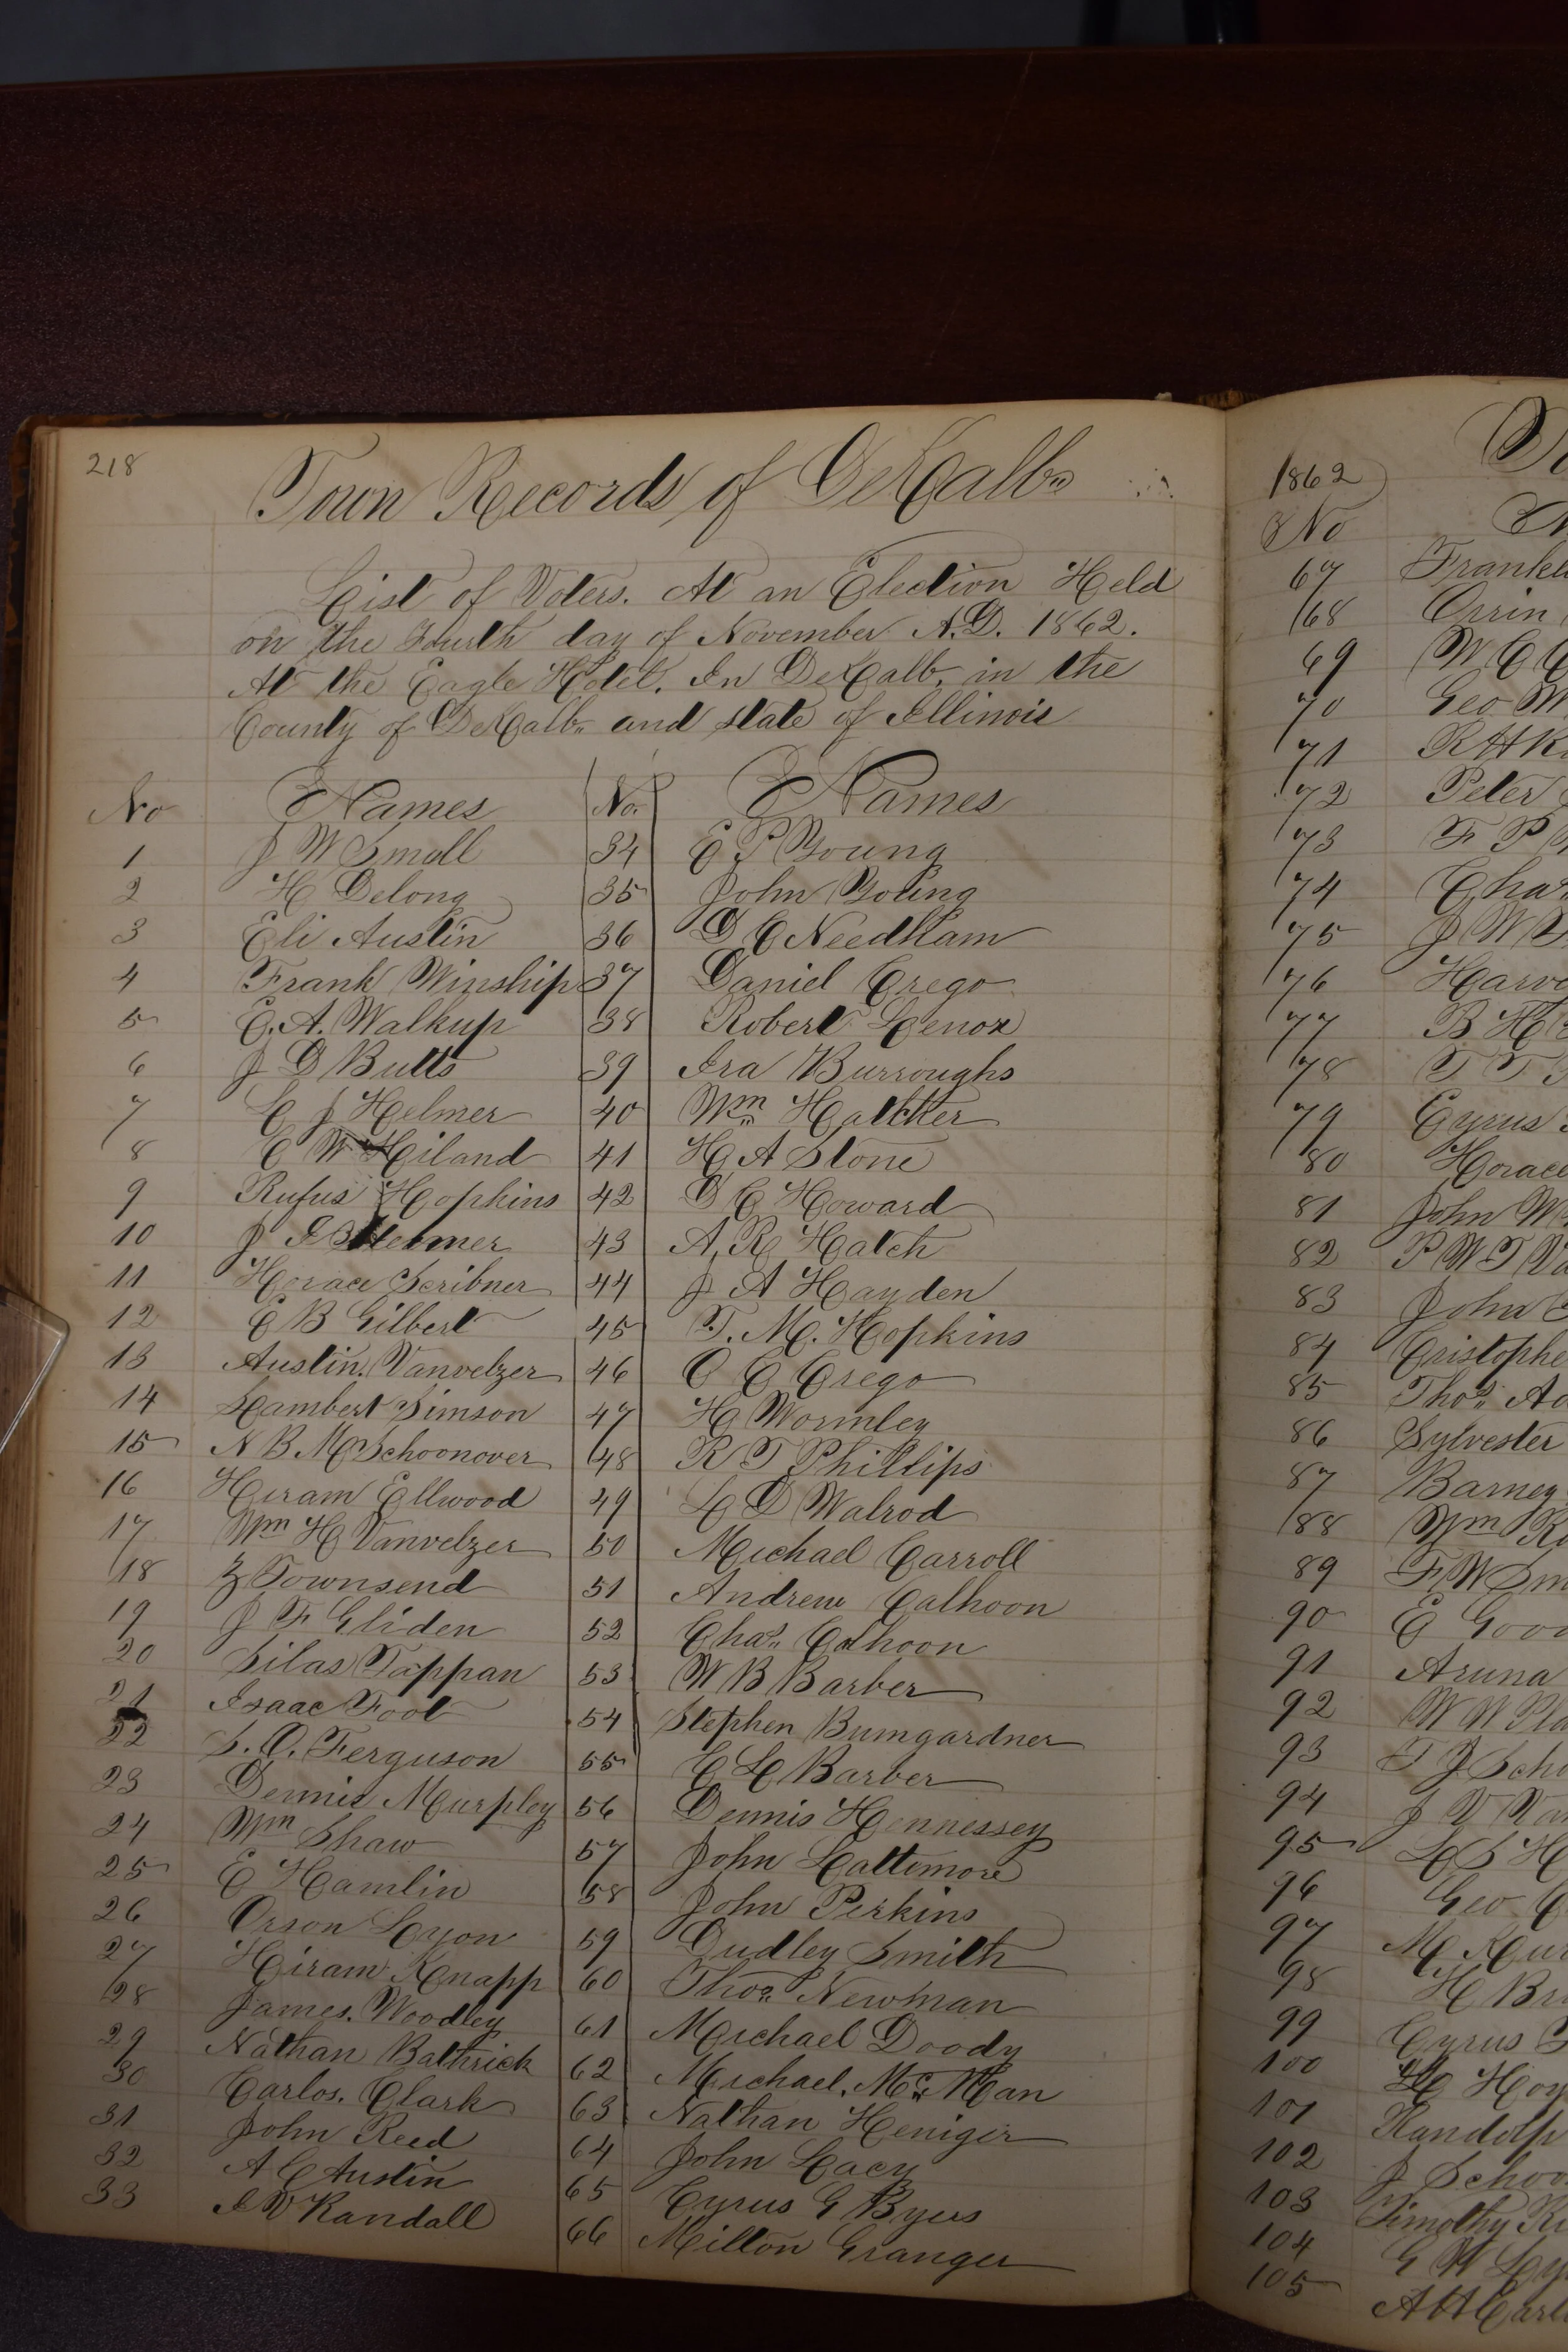 218
Town Records of DeKalb
List of Voters. At an Election Held
on the Fourth day of November A.D. 1862.
At the Eagle Hotel. In DeKalb, in the
County of DeKalb and State of Illinois
No Names
1 J W Small
2 H Delong
3 Eli Austin
4 Frank Winship
5 E. A. Walkup
6 J D Butts
7 L J Helmer
8 C W Hiland
9 Rufus Hopkins
10 J
11 Horace Scribner
12 E B Gilbert
13 Austin Vanvelzer
14 Lambert Simson
15 N B M Schoonover
16 Hiram Ellwood
17 Wm H Vanvelzer
18 Z Townsend
19 J F Gliden
20 Silas Tappan
21 Isaac Foot
22 S. O. Ferguson
23 Dennis Murpley
24 Wm Shaw
25 E Hamlin
26 Orson Lyon
27 Hiram Knapp
28 James. Woodley
29 Nathan Bathrick
30 Carlos. Clark
31 John Reed
32 A C Austin
33 I V Randall
No. Names
34 E P Young
35 John Young
36 D C Needham
37 Daniel Crego
38 Robert Lenox
39 Ira Burroughs
40 Wm
41 H A Stone
42 D C Howard
43 A. R Hatch
44 J A Hayden
45 T. M. Hopkins
46 O C Crego
47 H Wormley
48 R T Phillips
49 L D Walrod
50 Michael Carroll
51 Andrew Calhoon
52 Chas. Calhoon
53 W B Barber
54 Stephen Bumgardner
55 C L Barber
56 Dennis Hennessey
57 John Lattimore
58 John Perkins
59 Dudley Smith
60 Thos. Newman
61 Michael Doody
62 Michael.
63 Nathan Heniger
64 John Lacy
65 Cyrus G Byers
66 Milton Granger
1862
No
67
68 Orrin
69 W C
70 Geo
71
72 Peter
73 F P
74
75 J W
76
77 B H
78 T T
79 Cyrus
80 Horace
81 John
82 P W T
83 John
84
85 Thos.
86 Sylvester
87 Barney
88 Wm
89 F W
90 E
91 Aruna
92 W W
93 T J
94 J V
95 L S
96 Geo
97 M
98 H
99 Cyrus
100
101
102 J
103 Timothy
104
105